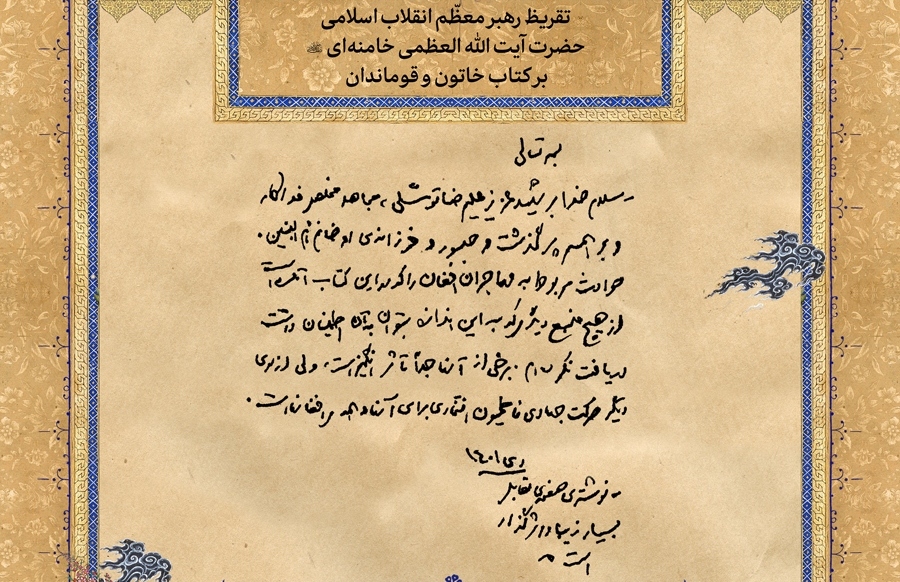 تقریظ رهبر معظّم انقلاب اسلامی
حضرت آیت الله العظمی خامنه‌ای
بر کتاب خاتون و قوماندان
بسمه تعالی
سلام خدا بر شهید عزیز علیرضا توسّلی، مجاهد مخلص فداکار
و بر همسر پرگذشت و صبور و فرزانه‌ی او خانم ام البنین.
حوادث مربوط به مهاجران افغان را که در این کتاب آمده است
از هیچ منبع دیگری که به این اندازه بتوان به آن اطمینان داشت
دریافت نکرده‌ام. برخی از آنها جداً تأثر انگیز است، ولی از سوی
دیگر حرکت جهادی فاطمیون افتخاری برای آنها و همه‌ی افغانها است.
دی ۱۴۰۱
نوشته‌ی صفحه‌ی مقابل
بسیار زیبا و اثرگذار
است